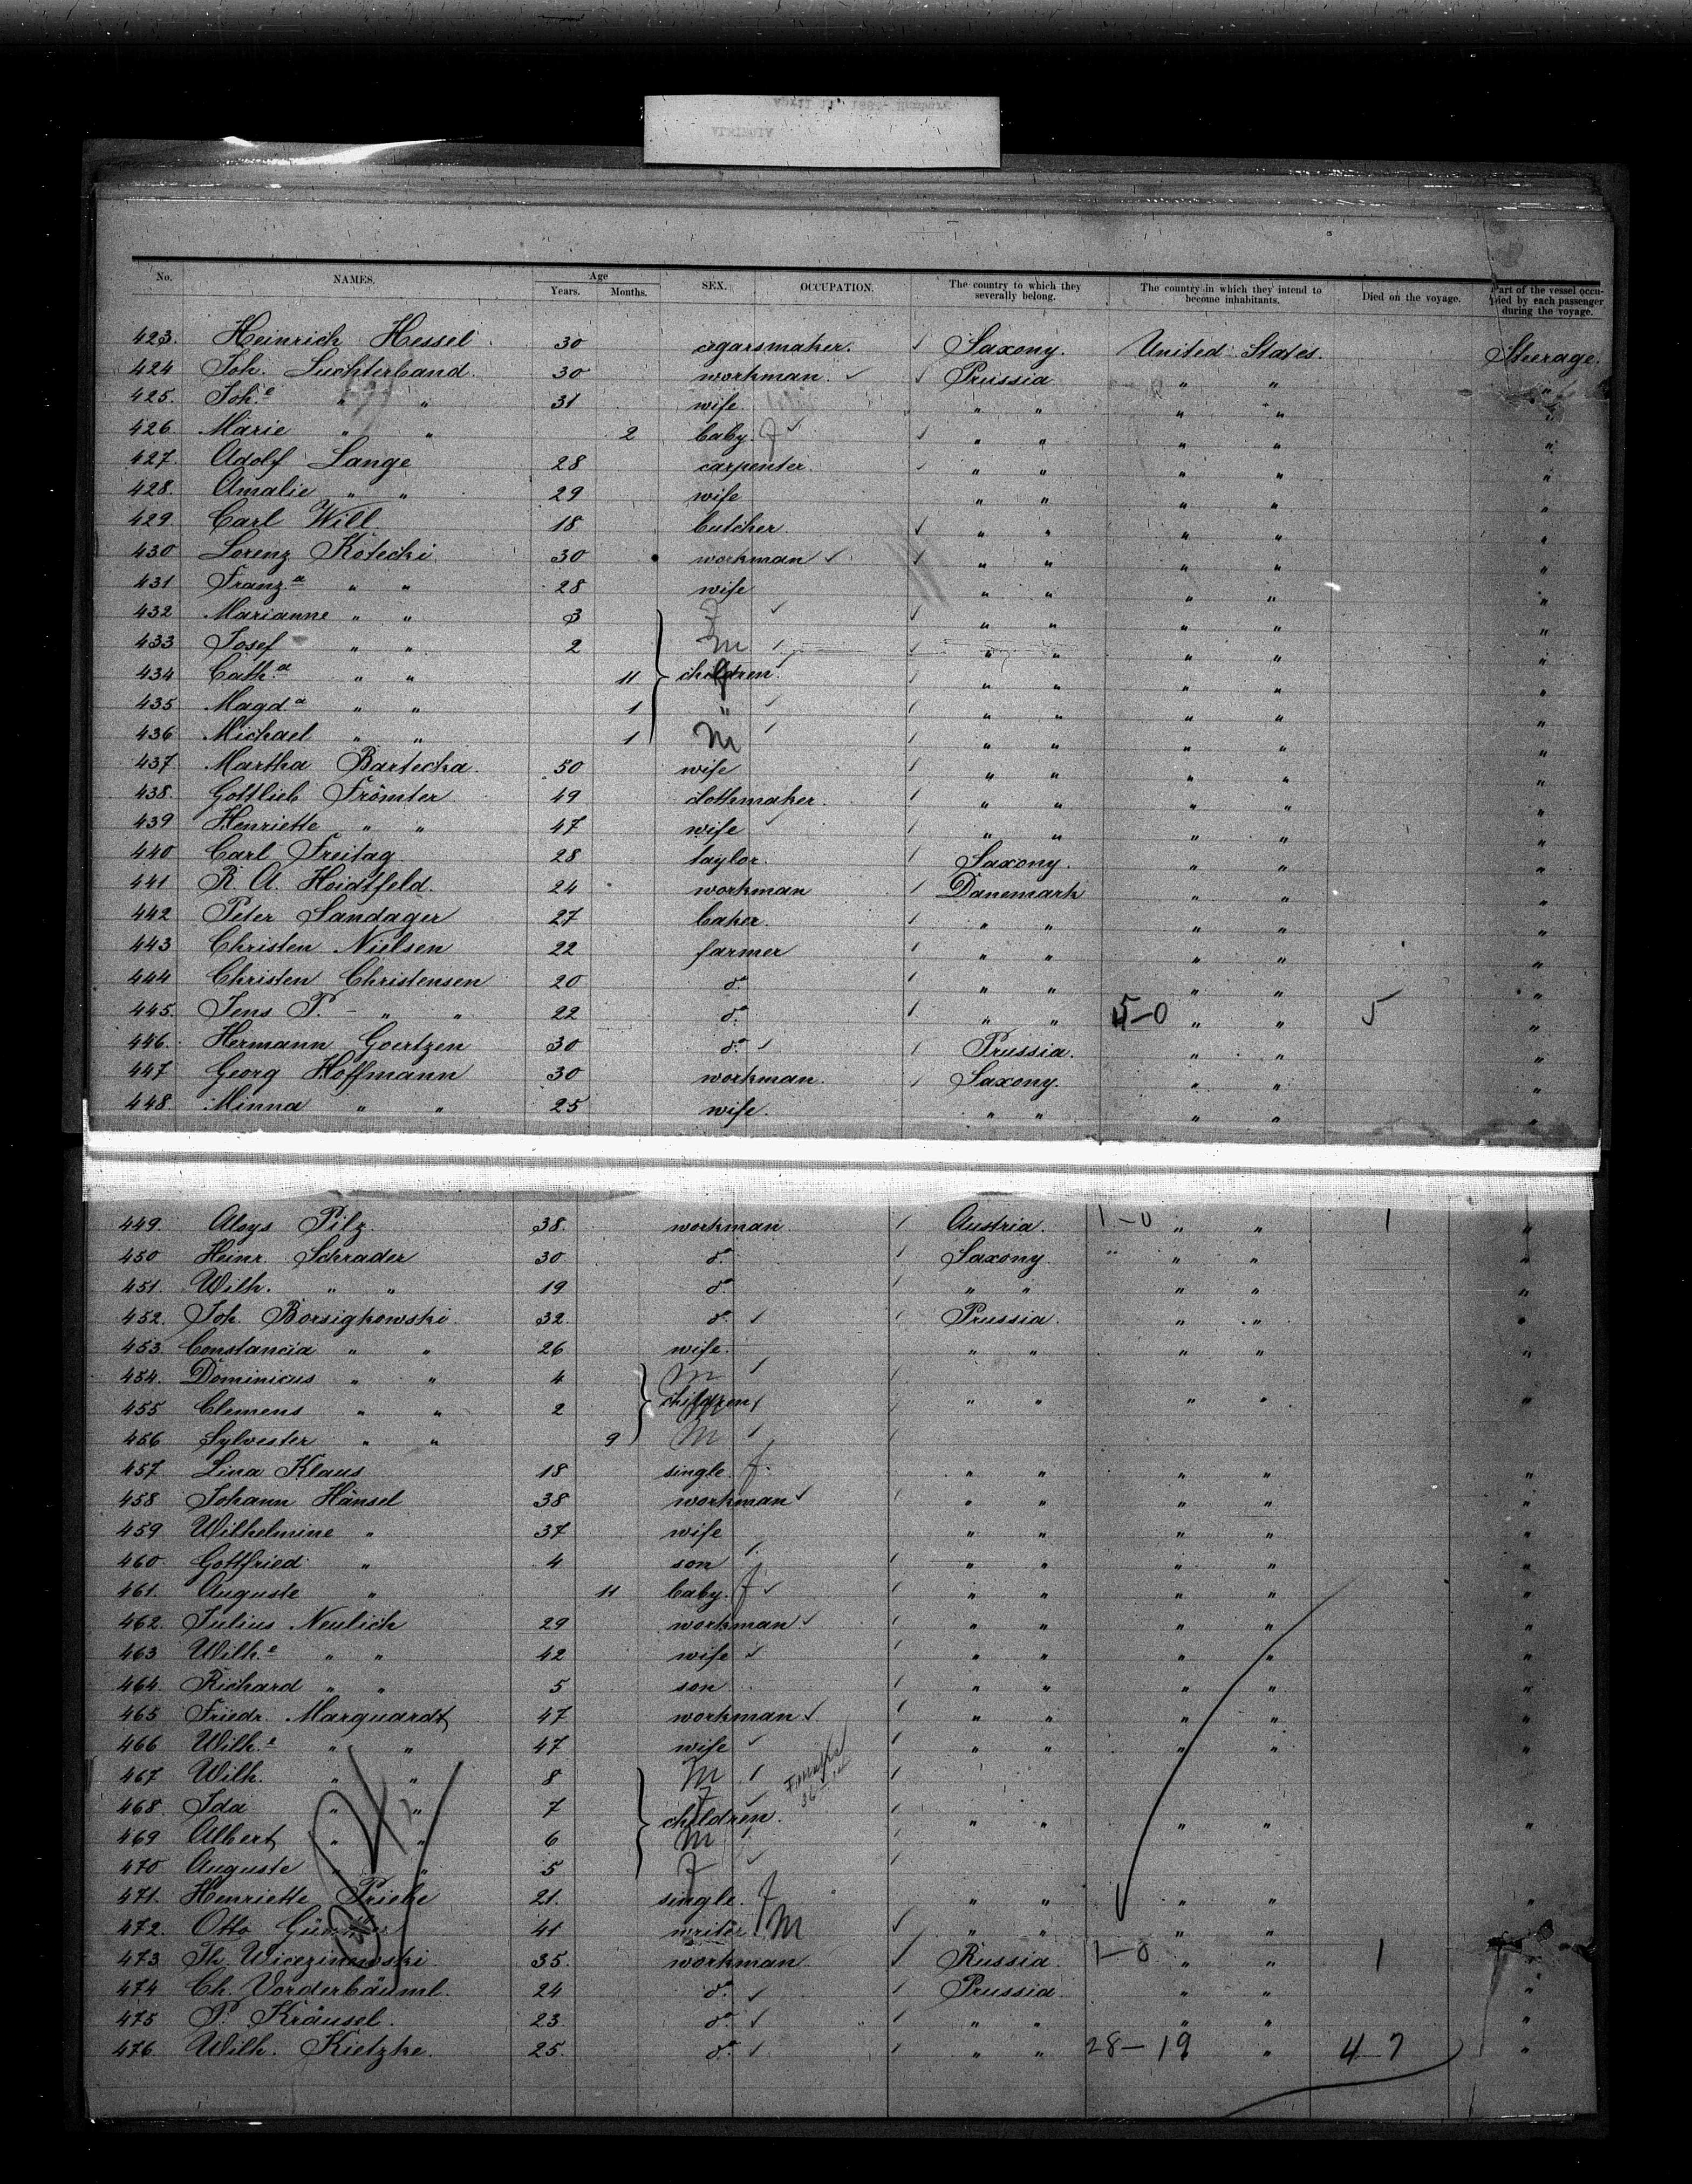 No. NAMES. Age Years. Months. SEX. OCCUPATION. The country to which they severally belong. The country in which they intend to become inhabitants. Died on the voyage. Part of the vessel occupied by each passenger during the voyage.
423. Heinrich Hessel 30 cigarsmaker. ✓ Saxony. United States. Steerage.
424 Joh. Luchterband. 30 workman. ✓ ✓ Prussia " " "
425. Joh.e " " 31 wife. " " " " "
426. Marie " " 2 baby. f ✓ ✓ " " " " "
427. Adolf Lange 28 carpenter. ✓ " " " " "
428. Amalie " " 29 wife " " " " "
429. Carl Will. 18 butcher ✓ " " " " "
430 Lorenz Kotecki 30 workman ✓ ✓ " " " " "
431 Franz.a " " 28 wife " " " " "
432 Marianne " " 3 f ✓ ✓ " " " " "
433 Josef " " 2 M ✓ ✓ " " " " "
434 Cath.a " " 11 children. f ✓ ✓ " " " " "
435 Magd.a " " 1 " ✓ ✓ " " " " "
436 Michael " " 1 M ✓ ✓ " " " " "
437. Martha Bartecka. 50 wife ✓ " " " " "
438. Gottlieb Frömter 49 clothmaker. ✓ " " " " "
439 Henriette " " 47 wife ✓ ✓ " " " " "
440 Carl Freitag 28 taylor. ✓ Saxony. " " "
441 R. A. Hoidtfeld. 24 workman ✓ Danemark " " "
442 Peter Sandager 27 baker. ✓ " " " " "
443 Christen Nielsen 22 farmer ✓ " " " " "
444 Christen Christensen 20 do. ✓ " " " " "
445. Jens P. - " " 22 do. ✓ " " 5-0 " " 5 "
446. Hermann Goertzen 30 do. ✓ ✓ Prussia. " " "
447 Georg Hoffmann 30 workman. ✓ Saxony. " " "
448. Minna " " 25 wife. " " " " "
449. Aloys Pilz 38. workman ✓ Austria. 1-0 " " 1 "
450 Heinr. Schrader 30. do. ✓ Saxony " " " "
451. Wilh. " " 19 do. ✓ " " " " "
452. Joh. Borsigkowski 32. do. ✓ ✓ Prussia. " " "
453. Constancia " " 26 wife. " " " " "
454. Dominicus " " 4 M ✓ ✓
455 Clemens " " 2 children M ✓ ✓ " " " " "
456 Sylvester " " 9 M ✓ ✓
457 Lina Klaus 18 single. f. " " " " "
458 Johann Hänsel 38 workman ✓ ✓ " " " " "
459 Wilhelmine " 37 wife " " " " "
460. Gottfried " 4 son ✓ ✓ " " " " "
461. Auguste " 11 baby. f ✓ ✓ " " " " "
462. Julius Neulich 29 workman. ✓ ✓ " " " " "
463 Wilh.e " " 42 wife ✓ ✓ " " " " "
464. Richard " " 5 son ✓ " " " " "
465 Friedr. Marquardt 47 workman ✓ ✓ " " " " "
466 Wilh.e " " 47 wife ✓ ✓ " " " " "
467 Wilh. " " 8 M ✓ ✓
468. Ida " " 7 f ✓ ✓
469 Albert " " 6 children. M ✓ ✓ " " " " "
470 Auguste " " 5 f ✓ ✓
471. Henriette Priebe 21. single. f " " " " "
472. Otto 41 writer M ✓ " " " " "
473 Th. 35. workman ✓ Russia. 1-0 " " 1 "
474 Ch. Vorderbäuml. 24 do. ✓ ✓ Prussia " " "
475 P. Kräusel. 23. do. ✓ ✓ " " " " "
476. Wilh. Kietzke. 25. do. ✓ ✓ " " 28-19 " 4-7 "